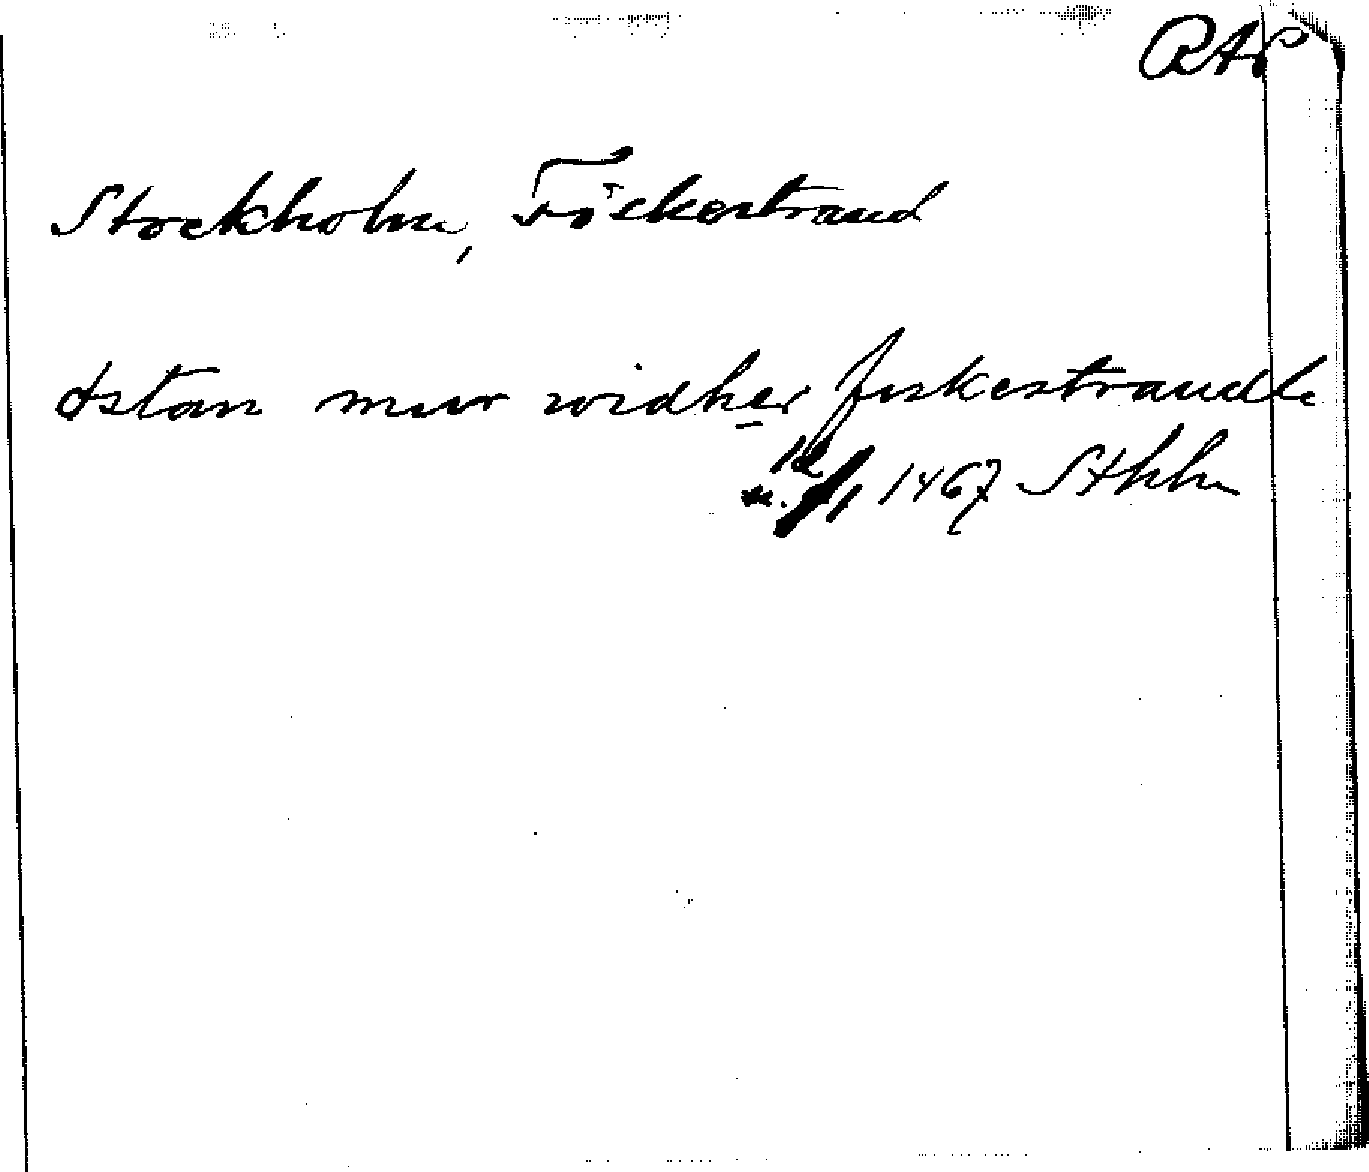 RAp
Stockholm, Fiskestrand
østan mur widher fiskestrandh
1467 Sthlm